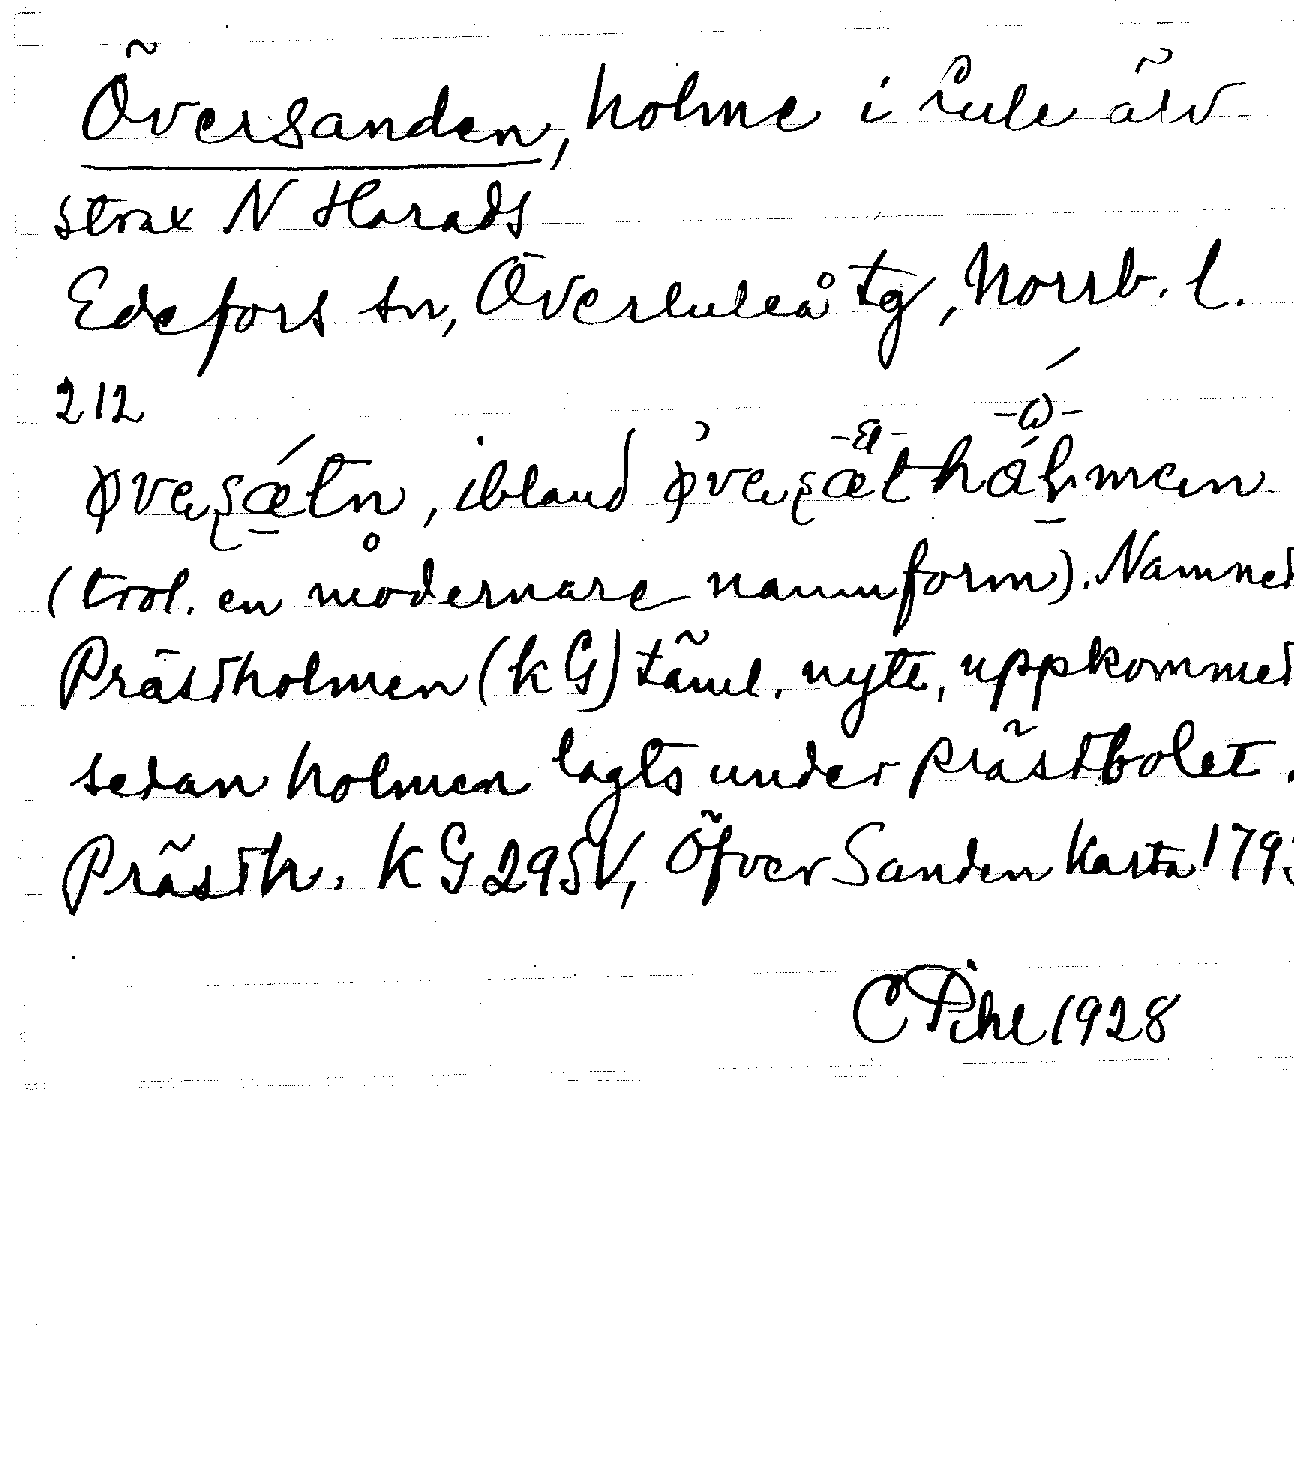 Översanden, holme i Lule älv
strax N Harads
Edefors sn, Överluleå tg, Norrb. l.
212
, ibland
(trol. en modernare namnform). Namnet
Prästholmen (k G) täml. nytt, uppkommet
sedan holmen lagts under prästbolet.
Prästh. k G 295V, Öfver Sanden Karta 179
C Pihl 1928